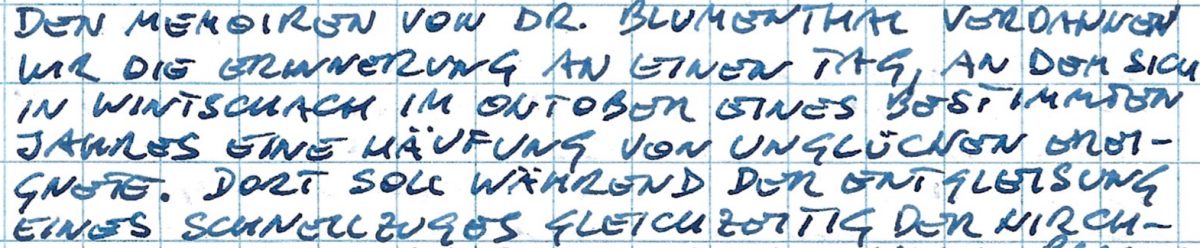 DEN MEMOIREN VON DR. BLUMENTHAL VERDANKEN
WIR DIE ERINNERUNG AN EINEN TAG, AN DEM SICH
IN WINTSCHACH IM OKTOBER EINES BESTIMMTEN
JAHRES EINE HÄUFUNG VON UNGLÜCKEN EREI-
GNETE. DORT SOLL WÄHREND DER ENTGLEISUNG
EINES SCHNELLZUGES GLEICHZEITIG DER KIRCH-